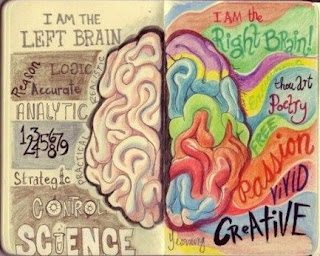 I AM THE
LEFT BRAIN
Reason
LOGIC
Accurate
REALISTIC
ANALYTIC
123456789
PRACTICAL
Strategic
CONTROL
SCiENCE
I AM the
Right Brain!
thou art
Poetry
FREE
Passion
ViViD
CReATiVE
Yearning